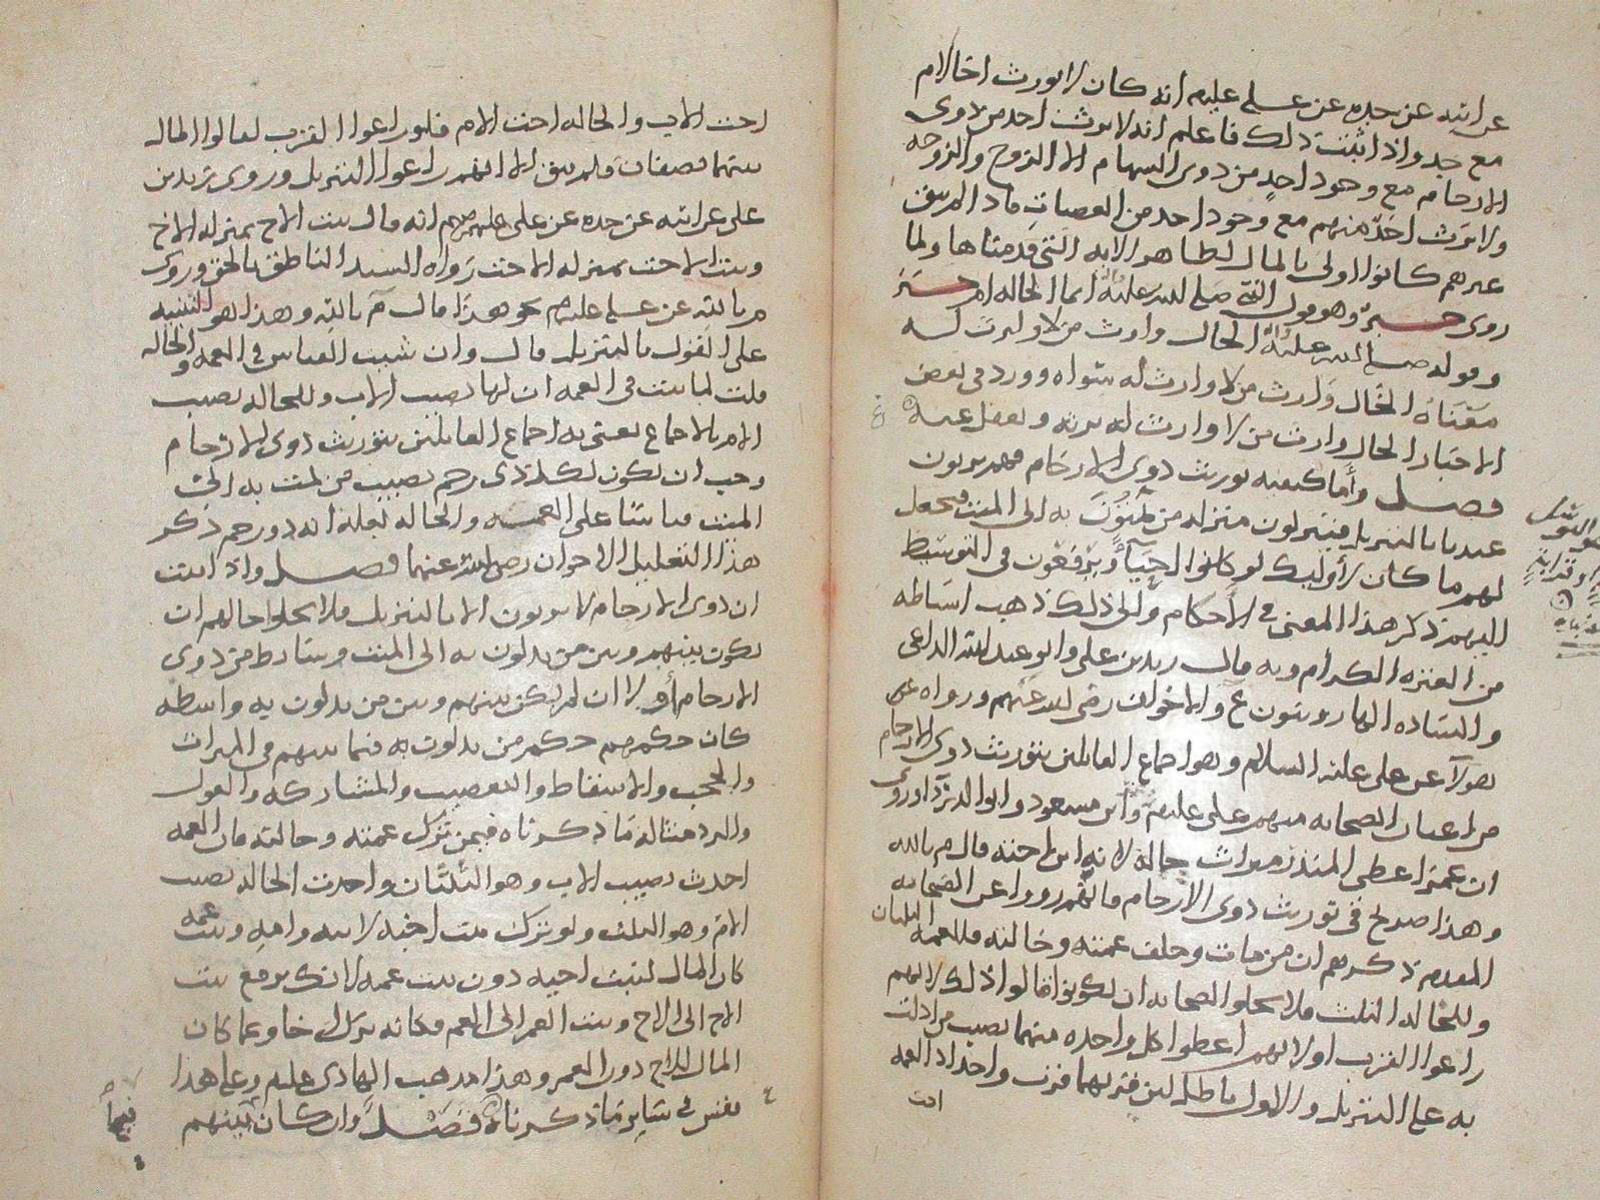 عن ابيه عن جده عن علي عليلم انه كان لا يورث اخا لام
مع جد واذا ثبت ذلك فاعلم انه لا يرث احد من ذوى
الارحام مع وجود احدٍ من ذوى السهام الا الزوج والزوجه
ولا يرث احدٌ منهم مع وجود احد من العصبات فاذا لم يبق
غيرهم كانوا اولى بالمال لظاهر الايه التي قدمناها ولما
روى خبر وهو قول النبي صلى الله عليه انما الخاله ام خبر
وقوله صلى الله عليه الخال وارث من لا وارث له
معناه الخال وارث من لا وارث له سواه وورد في بعض
الاخبار الخال وارث من لا وارث له يرثه ويعقل عنه
فصل واما كيفيه توريث ذوى الارحام فهم يرثون
عندنا بالتنزيل فينزلون منزله من يمتون به الى الميت فيجعل
لهم ما كان لأوليك لو كانوا احيآءً ويرفعون في التوسيط
اليهم ذكر هذا المعنى في الاحكام والى ذلك ذهب اسباطه
من العتره الكرام وبه قال زيد بن علي وابو عبدالله الداعى
والساده الهارونيون ع والاخوان رضي الله عنهم ورواه
هولآ عن علي عليه السلام وهو اجماع القائلين بتوريث ذوى الارحام
من اعيان الصحابه منهم علي عليلم وابن مسعود وابو الدردآ وروى
ان عمر اعطى المنذر ميراث خاله لانه ابن اخته قال م بالله
وهذا صريح في توريث ذوى الارحام فانهم رووا عن الصحابه
المقدم ذكرهم ان من مات وخلف عمته وخالته فللعمه الثلثان
وللخاله الثلث فلا يخلوا الصحابه ان يكونوا قالوا ذلك لانهم
راعوا القرب او لانهم اعطوا كل واحده منهما نصيب من ادلت
به على التنزيل والاول باطل لان قربهما قرب واحد اذ العمه
اخت
اخت الاب والخاله اخت الام فلو راعوا القرب لقالوا المال
بينهما نصفان فلم يبق الا انهم راعوا التنزيل وروى زيد بن
علي عن ابيه عن جده عن علي عليهم انه قال بنت الاخ بمنزله الاخ
وبنت الاخت بمنزله الاخت رواه السيد الناطق بالحق وروى
م بالله عن علي عليلم نحو هذا قال م بالله وهذا هو التنبيه
على القول بالتنزيل قال وان شيت القياس في العمه والخاله
قلت لما ثبت في العمه ان لها نصيب الاب وللخاله نصيب
الام بالاجماع يعنى به اجماع القائلين بتوريث ذوى الارحام
وجب ان يكون لكل ذى رحم نصيب من يمت به الى
الميت قياسا على العمه والخاله بعله انه ذو رحم ذكر
هذا التعليل الاخوان رضي الله عنهما فصل واذا ثبت
ان ذوى الارحام لا يرثون الا بالتنزيل فلا يخلوا حالهم ان
يكون بينهم وبين من يدلون به الى الميت وسايط من ذوى
الارحام أو لا ان لم يكن بينهم وبين من يدلون به واسطه
كان حكمهم حكم من يدلون به فيما بينهم في الميراث
والحجب والاسقاط والتعصيب والمشاركه والعول
والرد مثاله ما ذكرناه فيمن ترك عمته وخالته فان العمه
اخذت نصيب الاب وهو الثلثان واخذت الخاله نصيب
الام وهو الثلث ولو ترك بنت اخيه لابيه وامه وبنت عمه
كان المال لبنت اخيه دون بنت عمه لانك ترفع بنت
الاخ الى الاخ وبنت العم الى العم فكانه ترك اخا وعما كان
المال للاخ دون العم وهذا مذهب الهادى عليلم وعلى هذا
فقس في ساير ما ذكرناه فصل وان كان بينهم
فيما